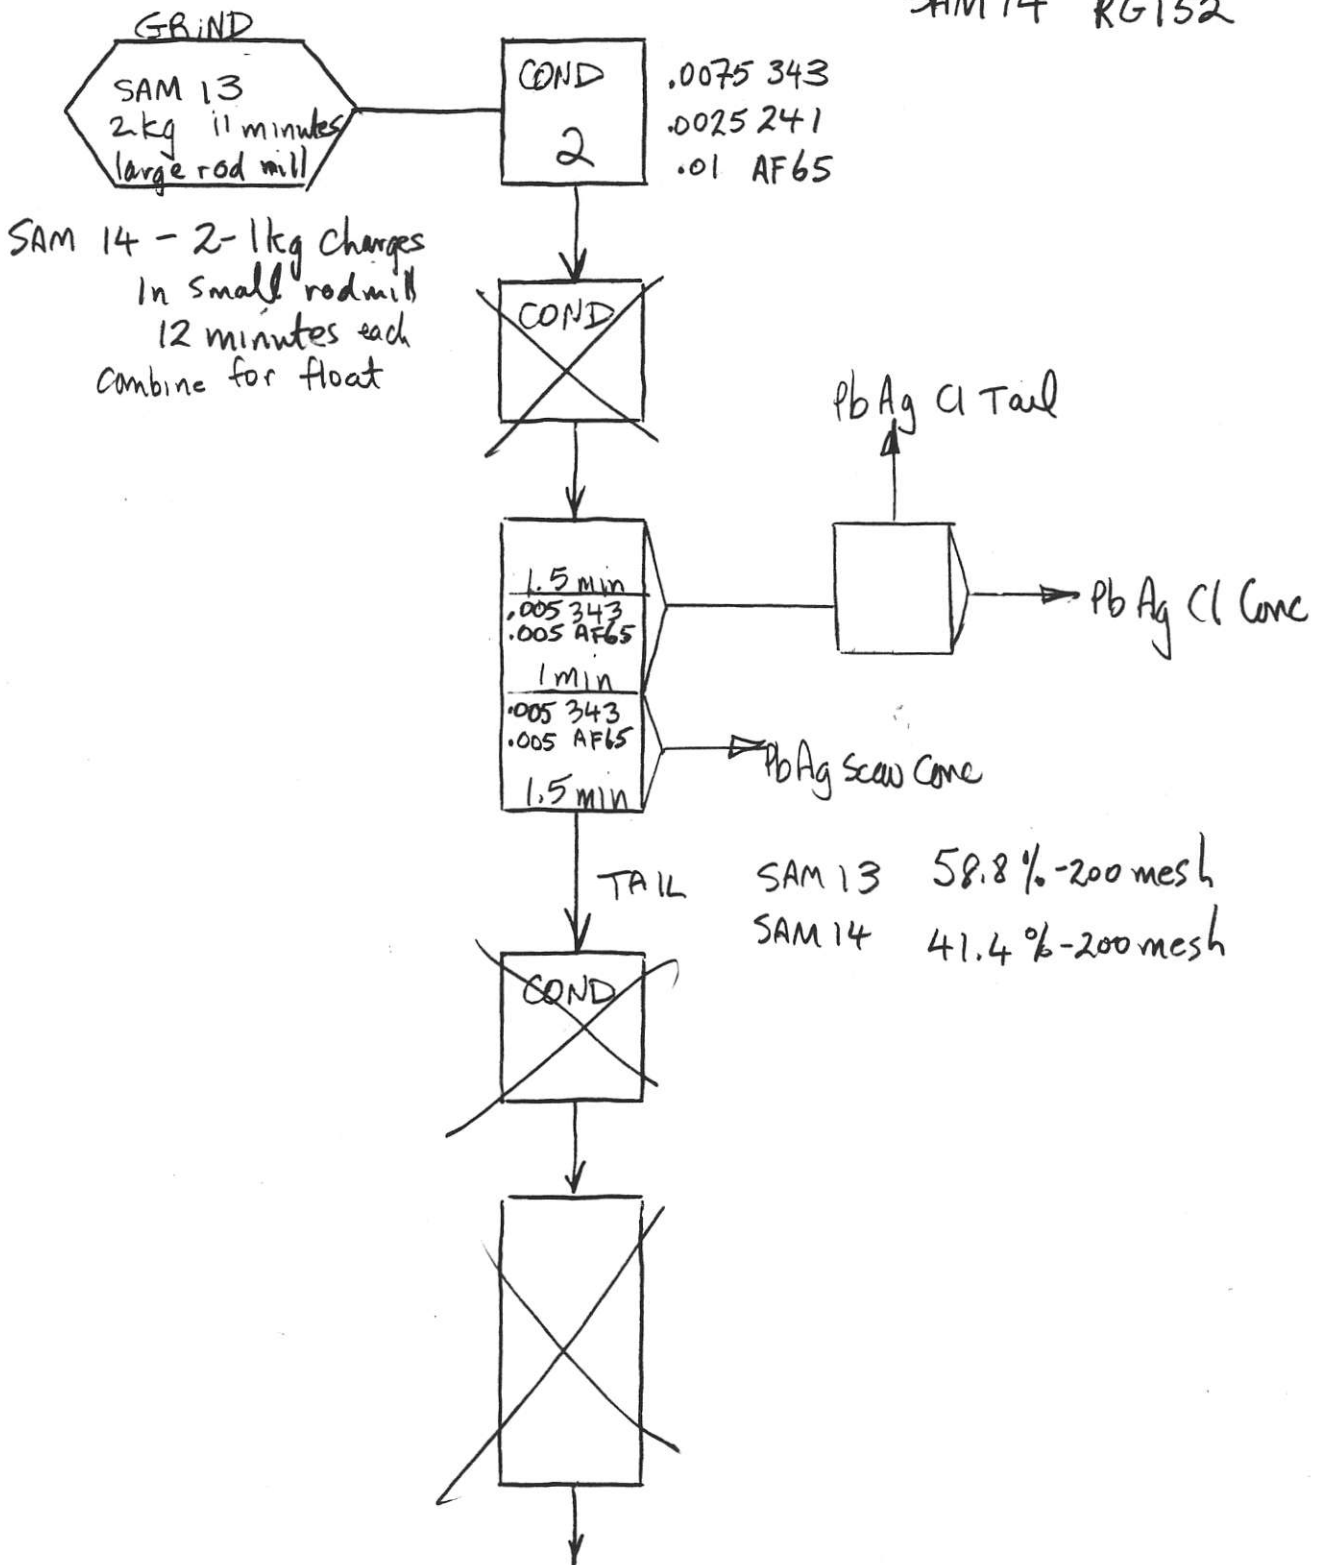 SAM 14 RG152
GRIND
SAM 13
2kg 11 minutes
large rod mill
COND
2
.0075 343
.0025 241
.01 AF65
SAM 14 - 2-1kg Charges
In small rodmill
12 minutes each
Combine for float
COND
Pb Ag Cl Tail
1.5 min
.005 343
.005 AF65
1 min
.005 343
.005 AF65
1.5 min
Pb Ag Cl Conc
Pb Ag Scav Conc
TAIL
SAM 13 58.8 % -200 mesh
SAM 14 41.4 % -200 mesh
COND